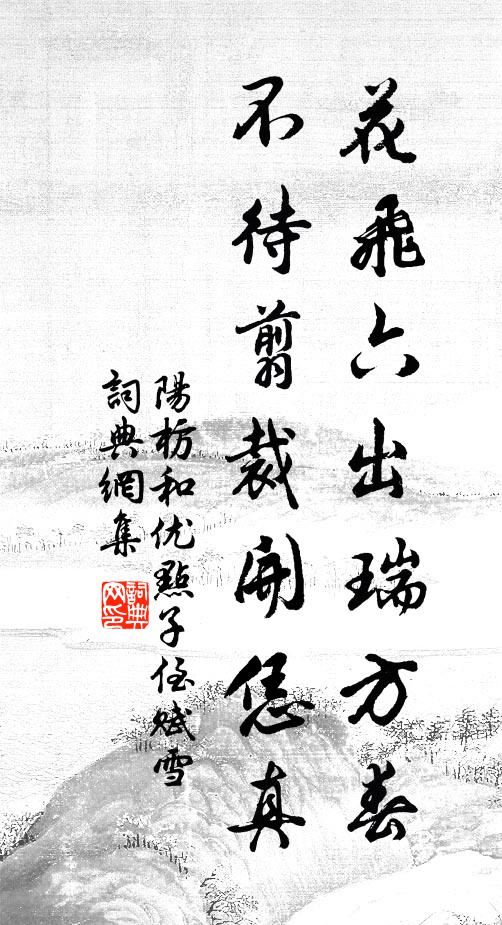 花飛六出瑞方春
不待翦裁開恁真
陽枋和优點子侄賦雪
詞典網集
詞典網印